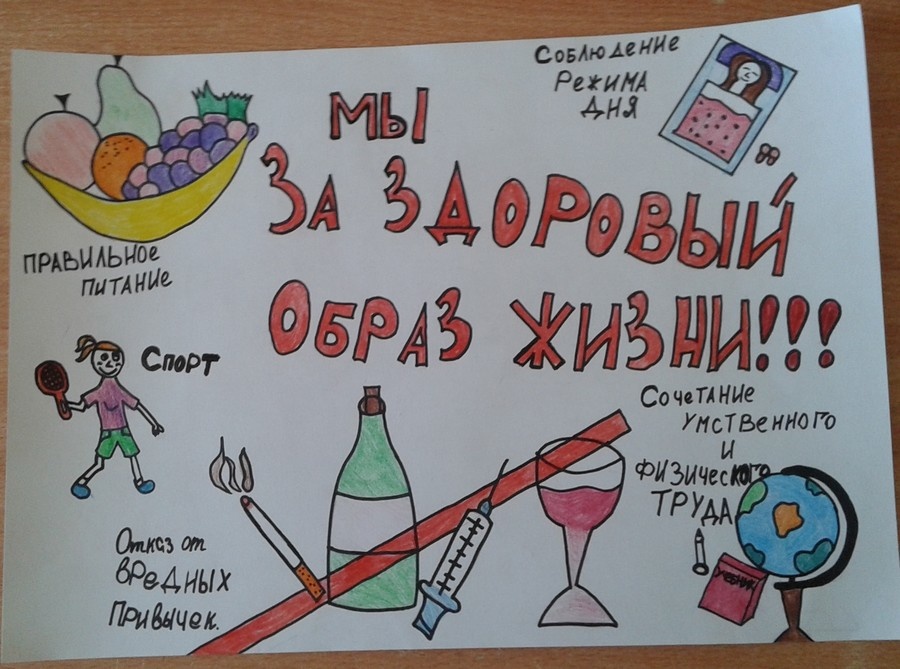 МЫ
ЗА ЗДОРОВЫЙ
ОБРАЗ ЖИЗНИ!!!
Соблюдение
Режима
Дня
ПРАВИЛЬНОЕ
ПИТАНИЕ
Спорт
Сочетание
умственного
и
физического
ТРУДА
Отказ от
вредных
привычек.
учебник